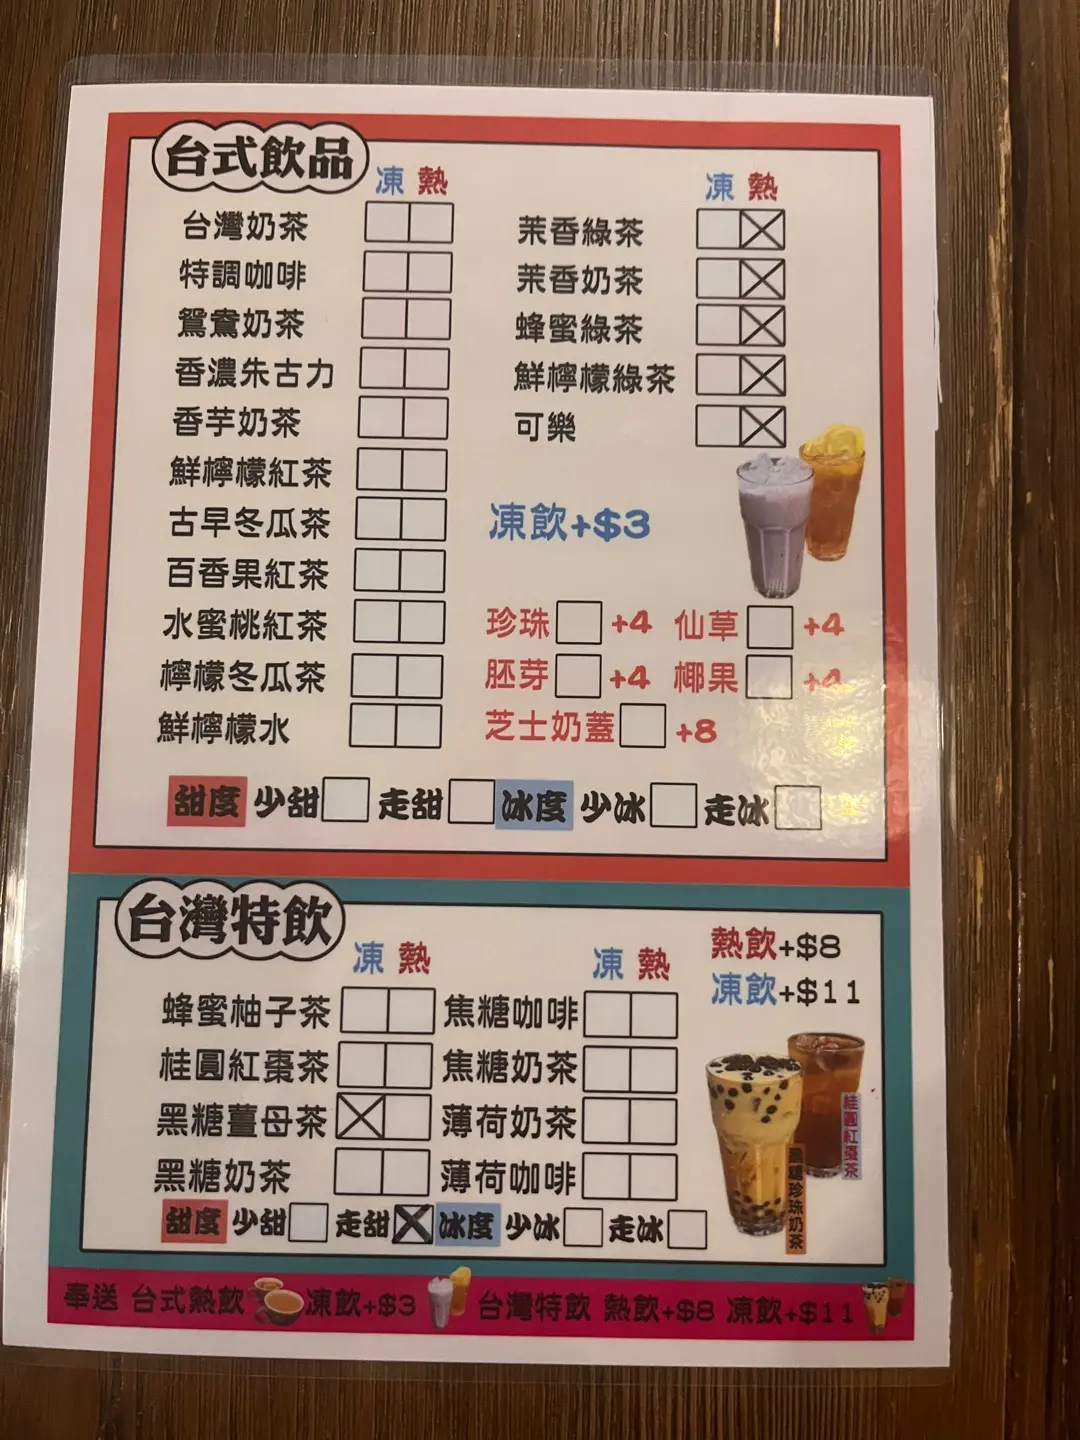 台式飲品
凍 熱
台灣奶茶
特調咖啡
鴛鴦奶茶
香濃朱古力
香芋奶茶
鮮檸檬紅茶
古早冬瓜茶
百香果紅茶
水蜜桃紅茶
檸檬冬瓜茶
鮮檸檬水
凍 熱
茉香綠茶
茉香奶茶
蜂蜜綠茶
鮮檸檬綠茶
可樂
凍飲+$3
珍珠 +4 仙草 +4
胚芽 +4 椰果 +4
芝士奶蓋 +8
甜度 少甜 走甜 冰度 少冰 走冰
台灣特飲
凍 熱
蜂蜜柚子茶
桂圓紅棗茶
黑糖薑母茶
黑糖奶茶
凍 熱
焦糖咖啡
焦糖奶茶
薄荷奶茶
薄荷咖啡
熱飲+$8
凍飲+$11
桂圓紅棗茶
黑糖珍珠奶茶
甜度 少甜 走甜 冰度 少冰 走冰
奉送 台式熱飲 凍飲+$3 台灣特飲 熱飲+$8 凍飲+$11